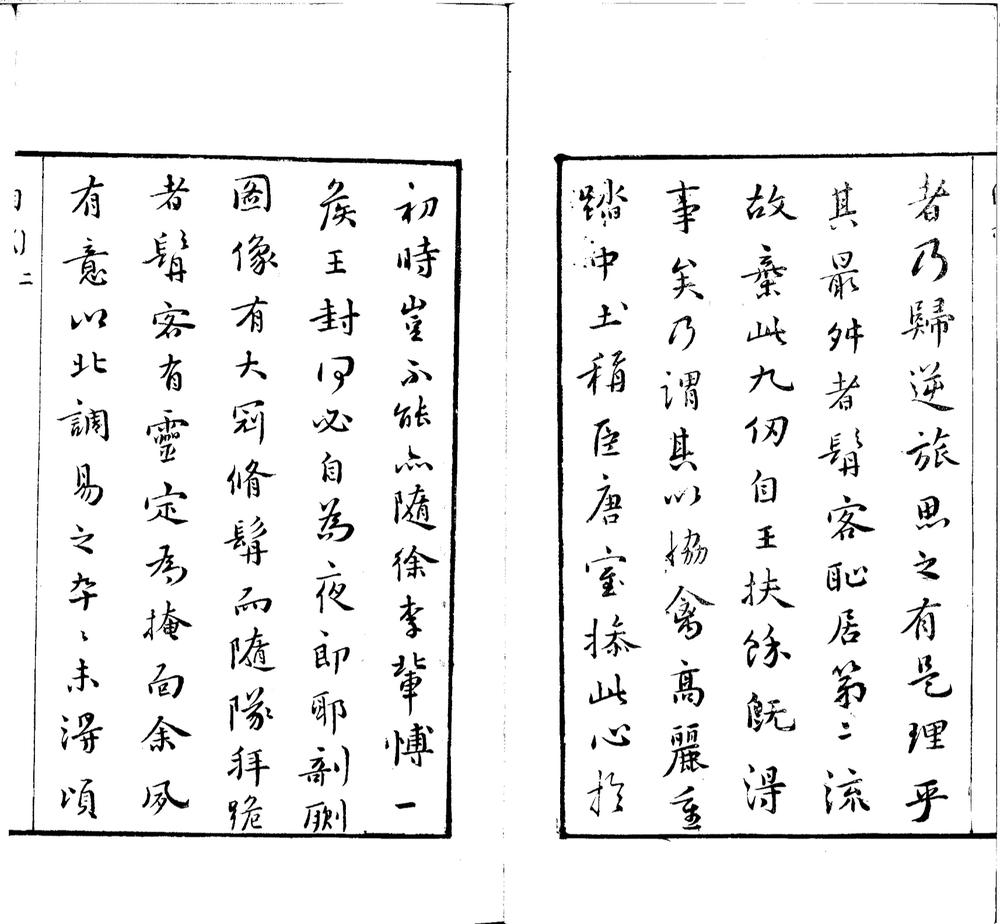 者乃歸逆旅思之有是理乎
其最舛者髯客恥居第二流
故棄此九仞自王扶餘既得
事矣乃謂其以協禽高麗重
踏中土稱臣唐室揆此心於
初時豈不能亦隨徐李輩博一
侯王封何必自為夜郎耶剞劂
圖像有大冠脩髯而隨隊拜跪
者髯客有靈定為掩面余夙
有意以北調易之卒〻未得頃